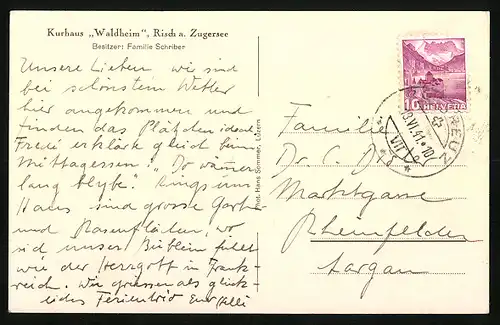 Kurhaus „Waldheim", Risch a. Zugersee
Besitzer: Familie Schriber
Unsere Lieben wir sind
bei schönstem Wetter
hier angekommen und
finden das Plätzchen ideal
Fredé erklärt gleich beim
Mittagessen: "Do wämer
lang blybe". Rings ums
Haus sind grosse Garten
und Rasenflächen, wo
sich unser Büblein fühlt
wie der Herrgott in Frank-
reich. Wir grüssen als glück-
liches Ferientrio Eure
Phot. Hans Sommer, Luzern
10 HELVETIA
VI.41
Familie
Dr. C.
Marktgasse
Rheinfelden
Aargau